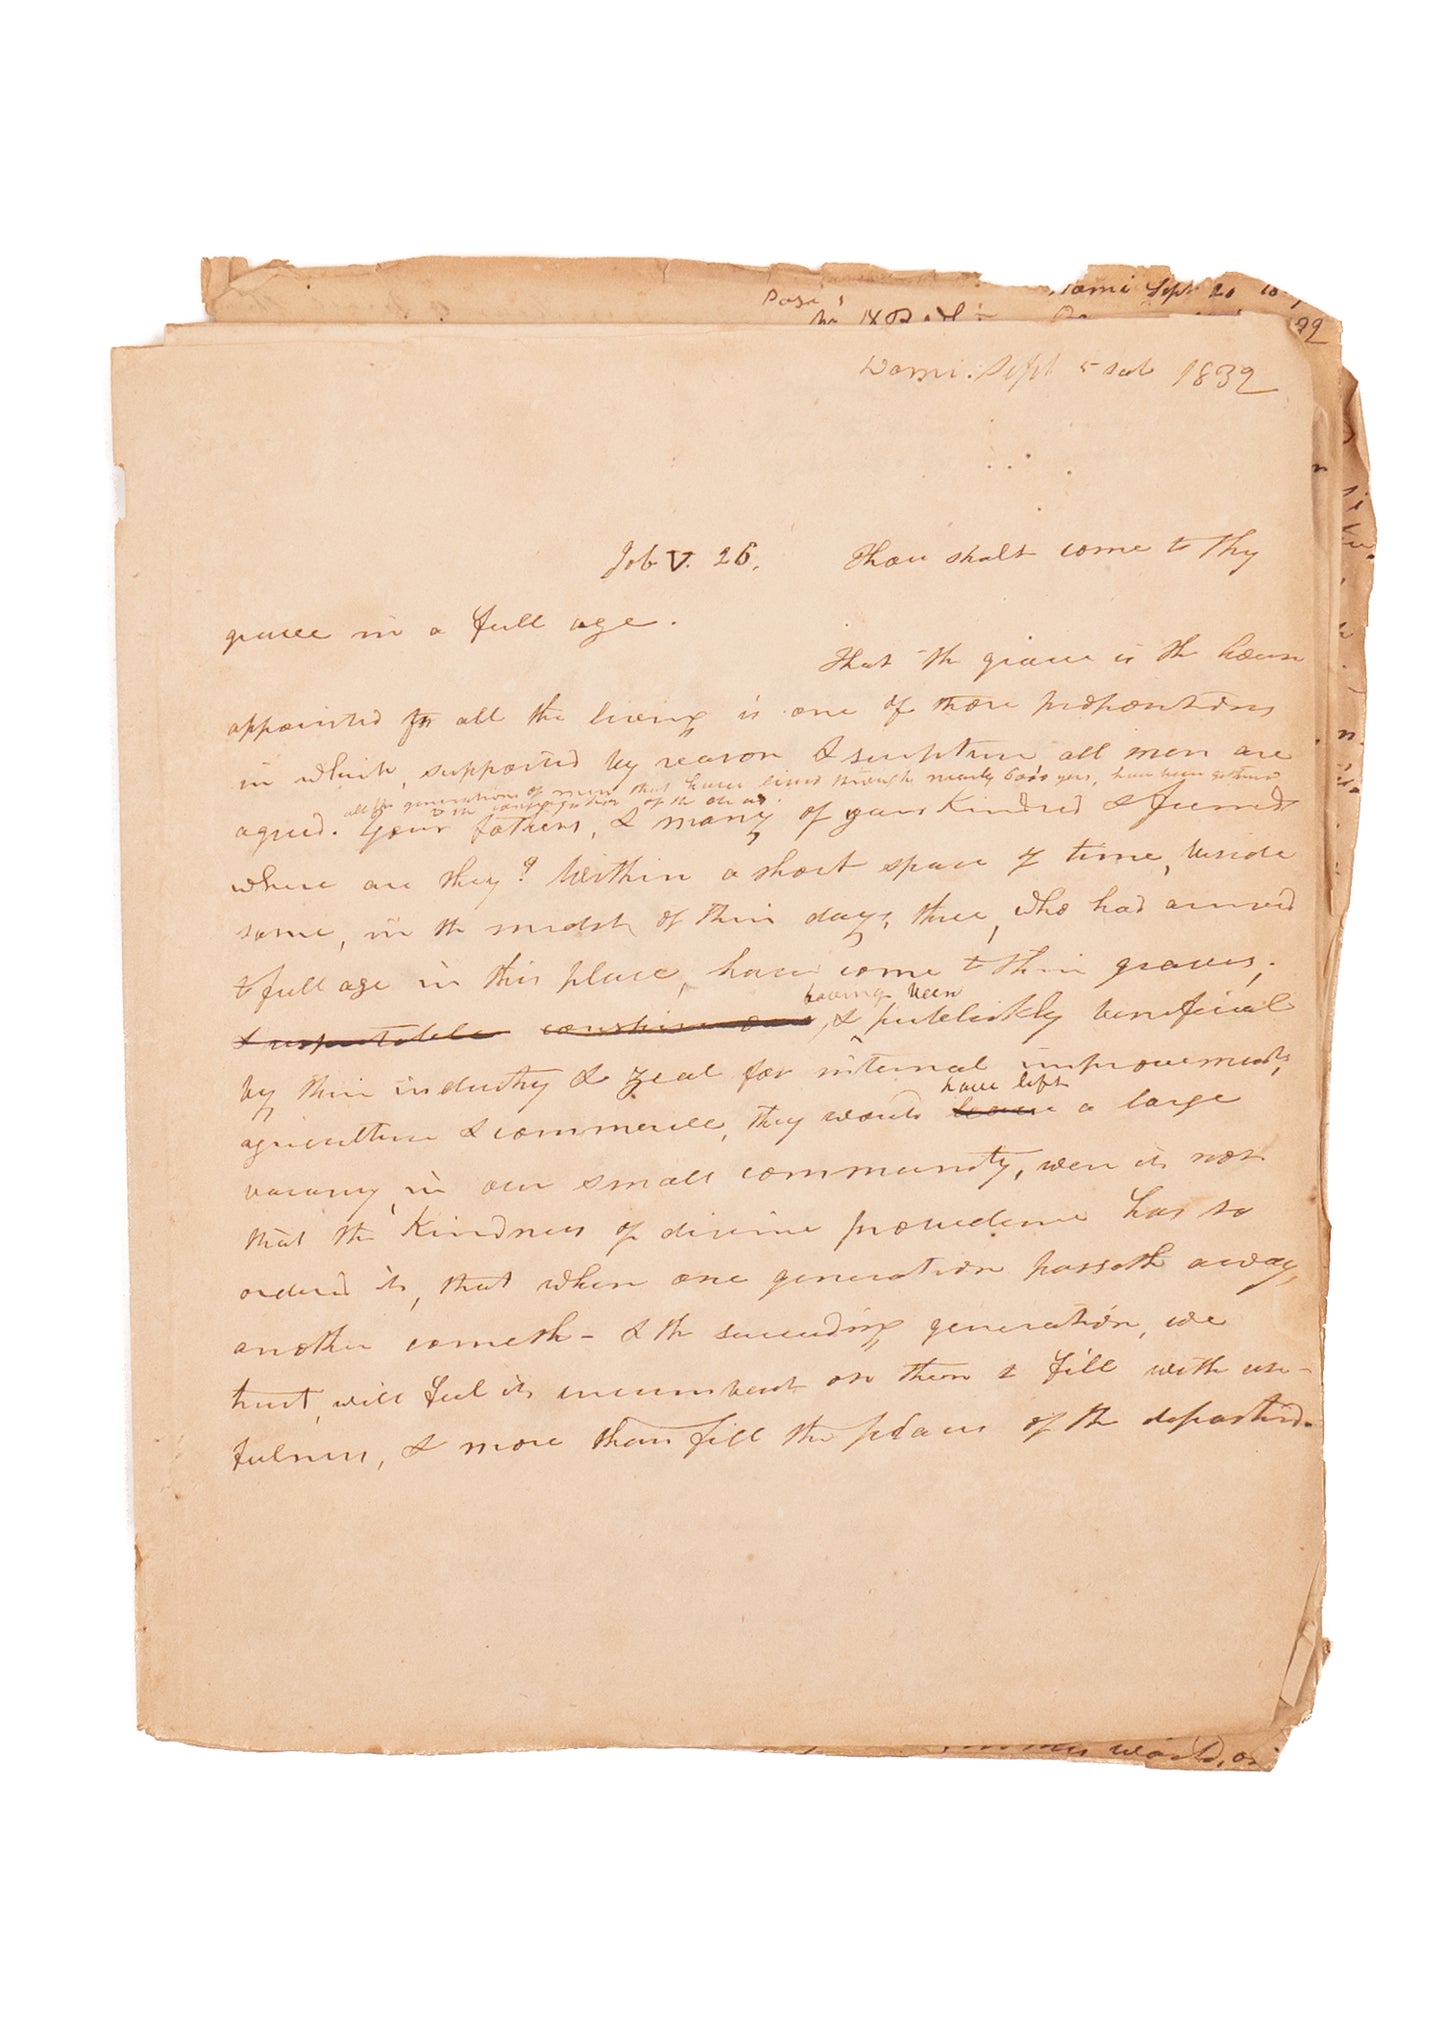 Domi. Sept 1832
Job V. 26. Thou shalt come to thy
grave in a full age.
That the grave is the house
appointed for all the living is one of those propositions
in which, supported by reason & scripture all men are
all the generations of men that have lived through nearly 6000 years, have been gathered
to the congregation of the dead.
agreed. Your fathers, & many of your kindred & friends
where are they? Within a short space of time, beside
some, in the midst of their days, three, who had arrived
to full age in this place, have come to their graves;
having been
& respectable , & publickly beneficial
by their industry & zeal for internal improvements,
have left
agriculture & commerce, they would leave a large
vacancy in our small community, were it not
that the kindness of divine providence has so
ordered it, that when one generation passeth away,
another cometh - & the succeeding generation, we
trust, will feel it incumbent on them to fill with use-
fulness, & more than fill the places of the departed.